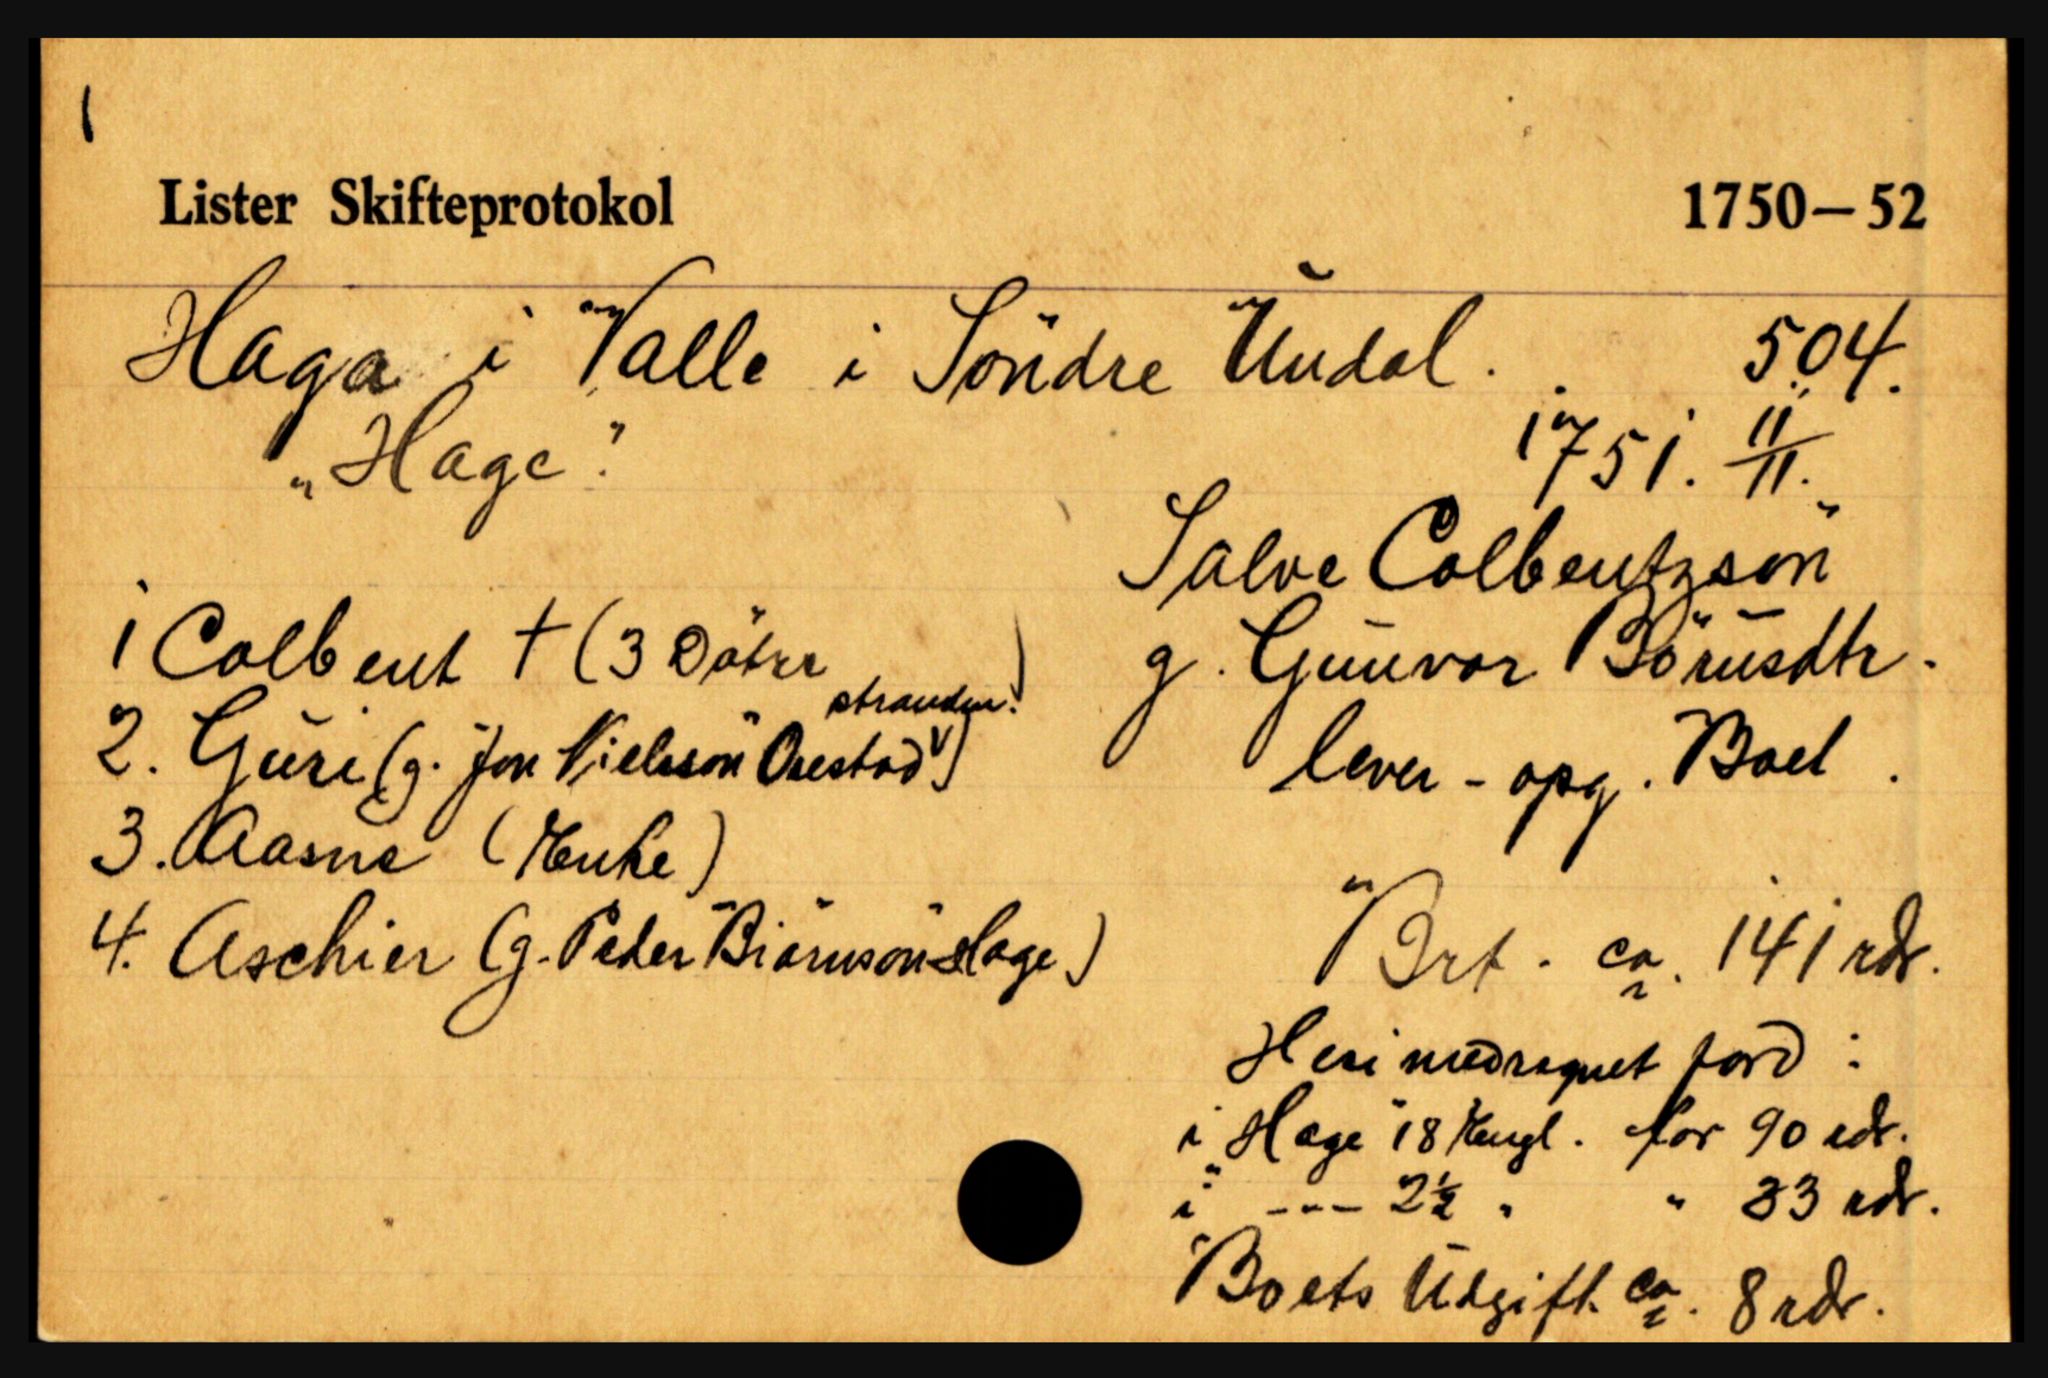 1
Lister Skifteprotokol 1750–52
Haga i Valle i Söndre Undal. 504.
"Hage". 1751. 11/11.
Salve Colbentzsön
g. Gunvor Börnsdtr.
lever - opg. Boet.
1 Colbent † (3 Dötre)
2. Guri (g. Jon Nielssön Osestad stranden.)
3. Aasne (Enke)
4. Aschier (g. Peder Biörnsön Hage)
Brt. ca. 141 rdr.
Heri medregnet jord:
i Hage 18 Engl. for 90 rdr.
i " --- 2½ " " 33 rdr.
Boets Udgift ca. 8 rdr.